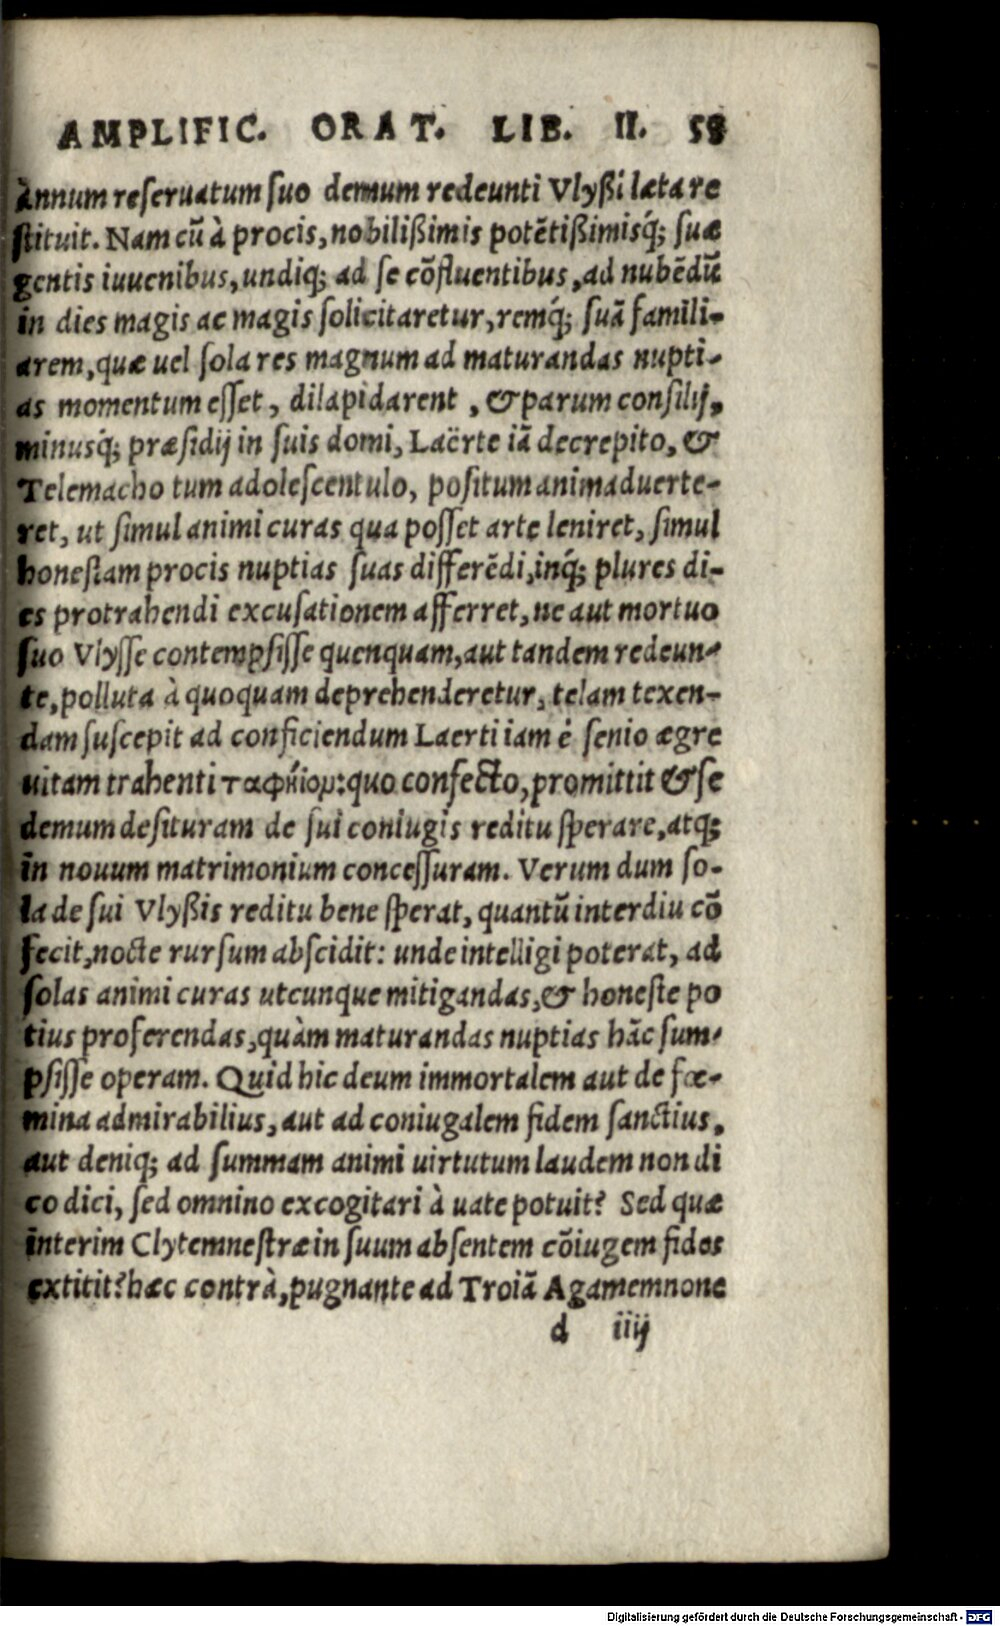 AMPLIFIC. ORAT. LIB. II. 58
annum reseruatum suo demum redeunti Vlyßi læta re
stituit. Nam cū à procis, nobilißimis potētißimisq́; suæ
gentis iuuenibus, undiq; ad se cōfluentibus, ad nubēdū
in dies magis ac magis solicitaretur, remq́; suā famili-
arem, quæ uel sola res magnum ad maturandas nupti-
as momentum esset, dilapidarent, & parum consilij,
minusq́; præsidij in suis domi, Laërte iā decrepito, &
Telemacho tum adolescentulo, positum animaduerte-
ret, ut simul animi curas qua posset arte leniret, simul
honestam procis nuptias suas differēdi, inq́; plures di-
es protrahendi excusationem afferret, ne aut mortuo
suo Vlysse contempsisse quenquam, aut tandem redeun-
te, polluta à quoquam deprehenderetur, telam texen-
dam suscepit ad conficiendum Laerti iam è senio ægre
uitam trahenti ταφήιον: quo confecto, promittit & se
demum desituram de sui coniugis reditu sperare, atq;
in nouum matrimonium concessuram. Verum dum so-
la de sui Vlyßis reditu bene sperat, quantū interdiu cō
fecit, nocte rursum abscidit: unde intelligi poterat, ad
solas animi curas utcunque mitigandas, & honeste po
tius proferendas, quàm maturandas nuptias hāc sum-
psisse operam. Quid hic deum immortalem aut de fœ-
mina admirabilius, aut ad coniugalem fidem sanctius,
aut deniq; ad summam animi uirtutum laudem non di
co dici, sed omnino excogitari à uate potuit? Sed quæ
interim Clytemnestræ in suum absentem cōiugem fides
extitit? hæc contrà, pugnante ad Troiā Agamemnone
d iiij
Digitalisierung gefördert durch die Deutsche Forschungsgemeinschaft - DFG